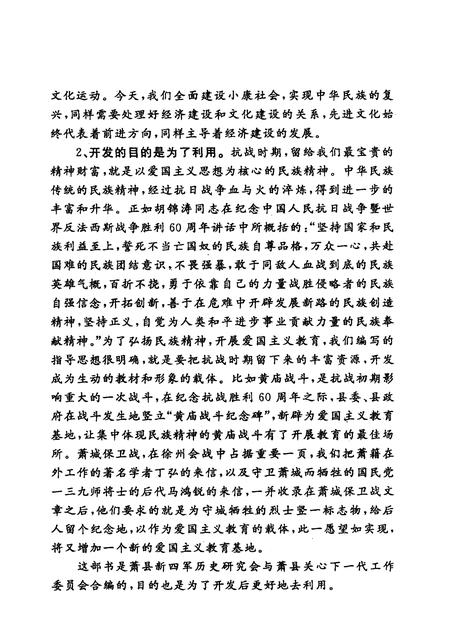 文化运动。今天,我们全面建设小康社会,实现中华民族的复
兴,同样需要处理好经济建设和文化建设的关系,先进文化始
终代表着前进方向,同样主导着经济建设的发展。
2、开发的目的是为了利用。抗战时期,留给我们最宝贵的
精神财富,就是以爱国主义思想为核心的民族精神。中华民族
传统的民族精神,经过抗日战争血与火的淬炼,得到进一步的
丰富和升华。正如胡锦涛同志在纪念中国人民抗日战争暨世
界反法西斯战争胜利60周年讲话中所概括的:“坚持国家和民
族利益至上,誓死不当亡国奴的民族自尊品格,万众一心,共赴
国难的民族团结意识,不畏强暴,敢于同敌人血战到底的民族
英雄气概,百折不挠,勇于依靠自己的力量战胜侵略者的民族
自强信念,开拓创新,善于在危难中开辟发展新路的民族创造
精神,坚持正义,自觉为人类和平进步事业贡献力量的民族奉
献精神。”为了弘扬民族精神,开展爱国主义教育,我们编写的
指导思想很明确,就是要把抗战时期留下来的丰富资源,开发
成为生动的教材和形象的载体。比如黄庙战斗,是抗战初期影
响重大的一次战斗,在纪念抗战胜利60周年之际,县委、县政
府在战斗发生地竖立“黄庙战斗纪念碑”,新辟为爱国主义教育
基地,让集中体现民族精神的黄庙战斗有了开展教育的最佳场
所。萧城保卫战,在徐州会战中占据重要一页,我们把萧籍在
外工作的著名学者丁弘的来信,以及守卫萧城而牺牲的国民党
一三九师将士的后代马鸿锐的来信,一并收录在萧城保卫战文
章之后,他们要求的就是为守城牺牲的烈士竖一标志物,给后
人留个纪念地,以作为爱国主义教育的载体,此一愿望如实现,
将又增加一个新的爱国主义教育基地。
这部书是萧县新四军历史研究会与萧县关心下一代工作
委员会合编的,目的也是为了开发后更好地去利用。